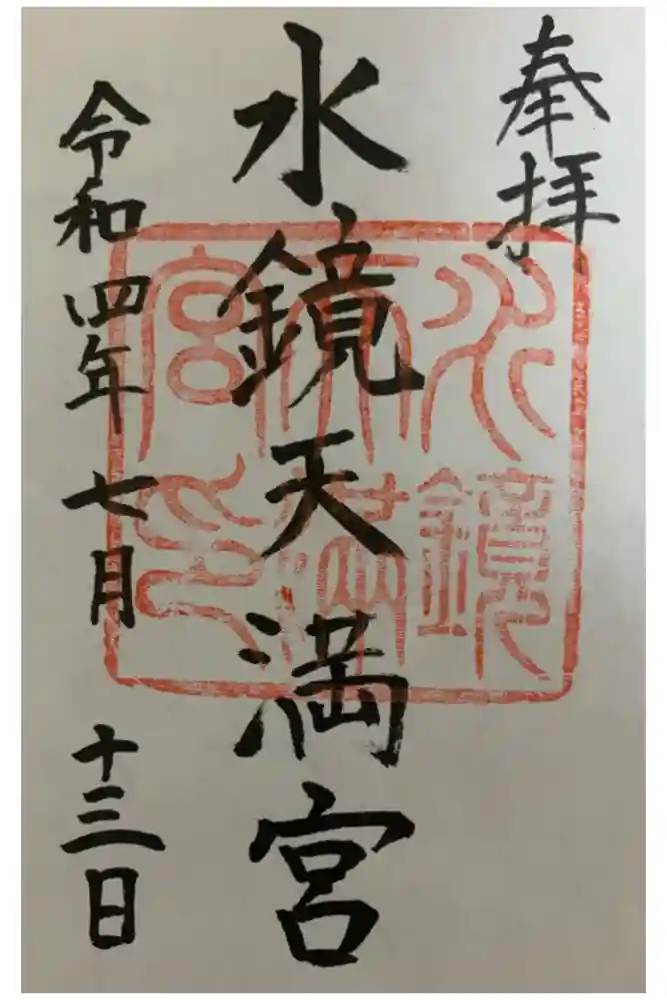 奉拝
水鏡天満宮
令和四年七月十三日
水鏡
天満
宮印